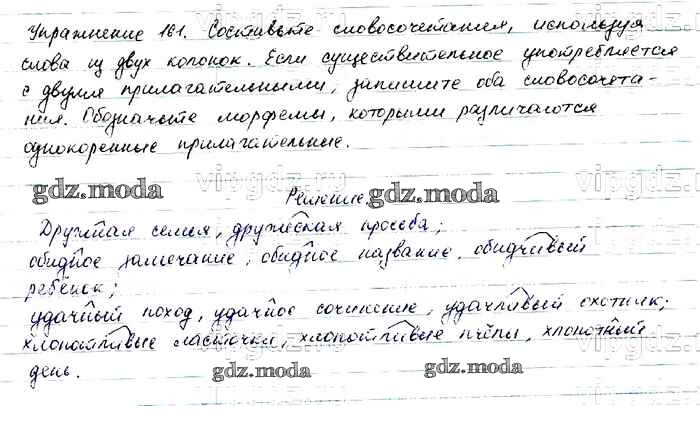 Упражнение 161. Составьте словосочетания, используя
слова из двух колонок. Если существительное употребляется
с двумя прилагательными, запишите оба словосочета-
ния. Обозначьте морфемы, которыми различаются
однокоренные прилагательные.
gdz.moda
Решение
gdz.moda
Дружная семья, дружеская просьба;
обидное замечание, обидное название, обидчивый
ребёнок;
удачный поход, удачное сочинение, удачливый охотник;
хлопотливые ласточки, хлопотливые пчёлы, хлопотный
день.
gdz.moda
gdz.moda